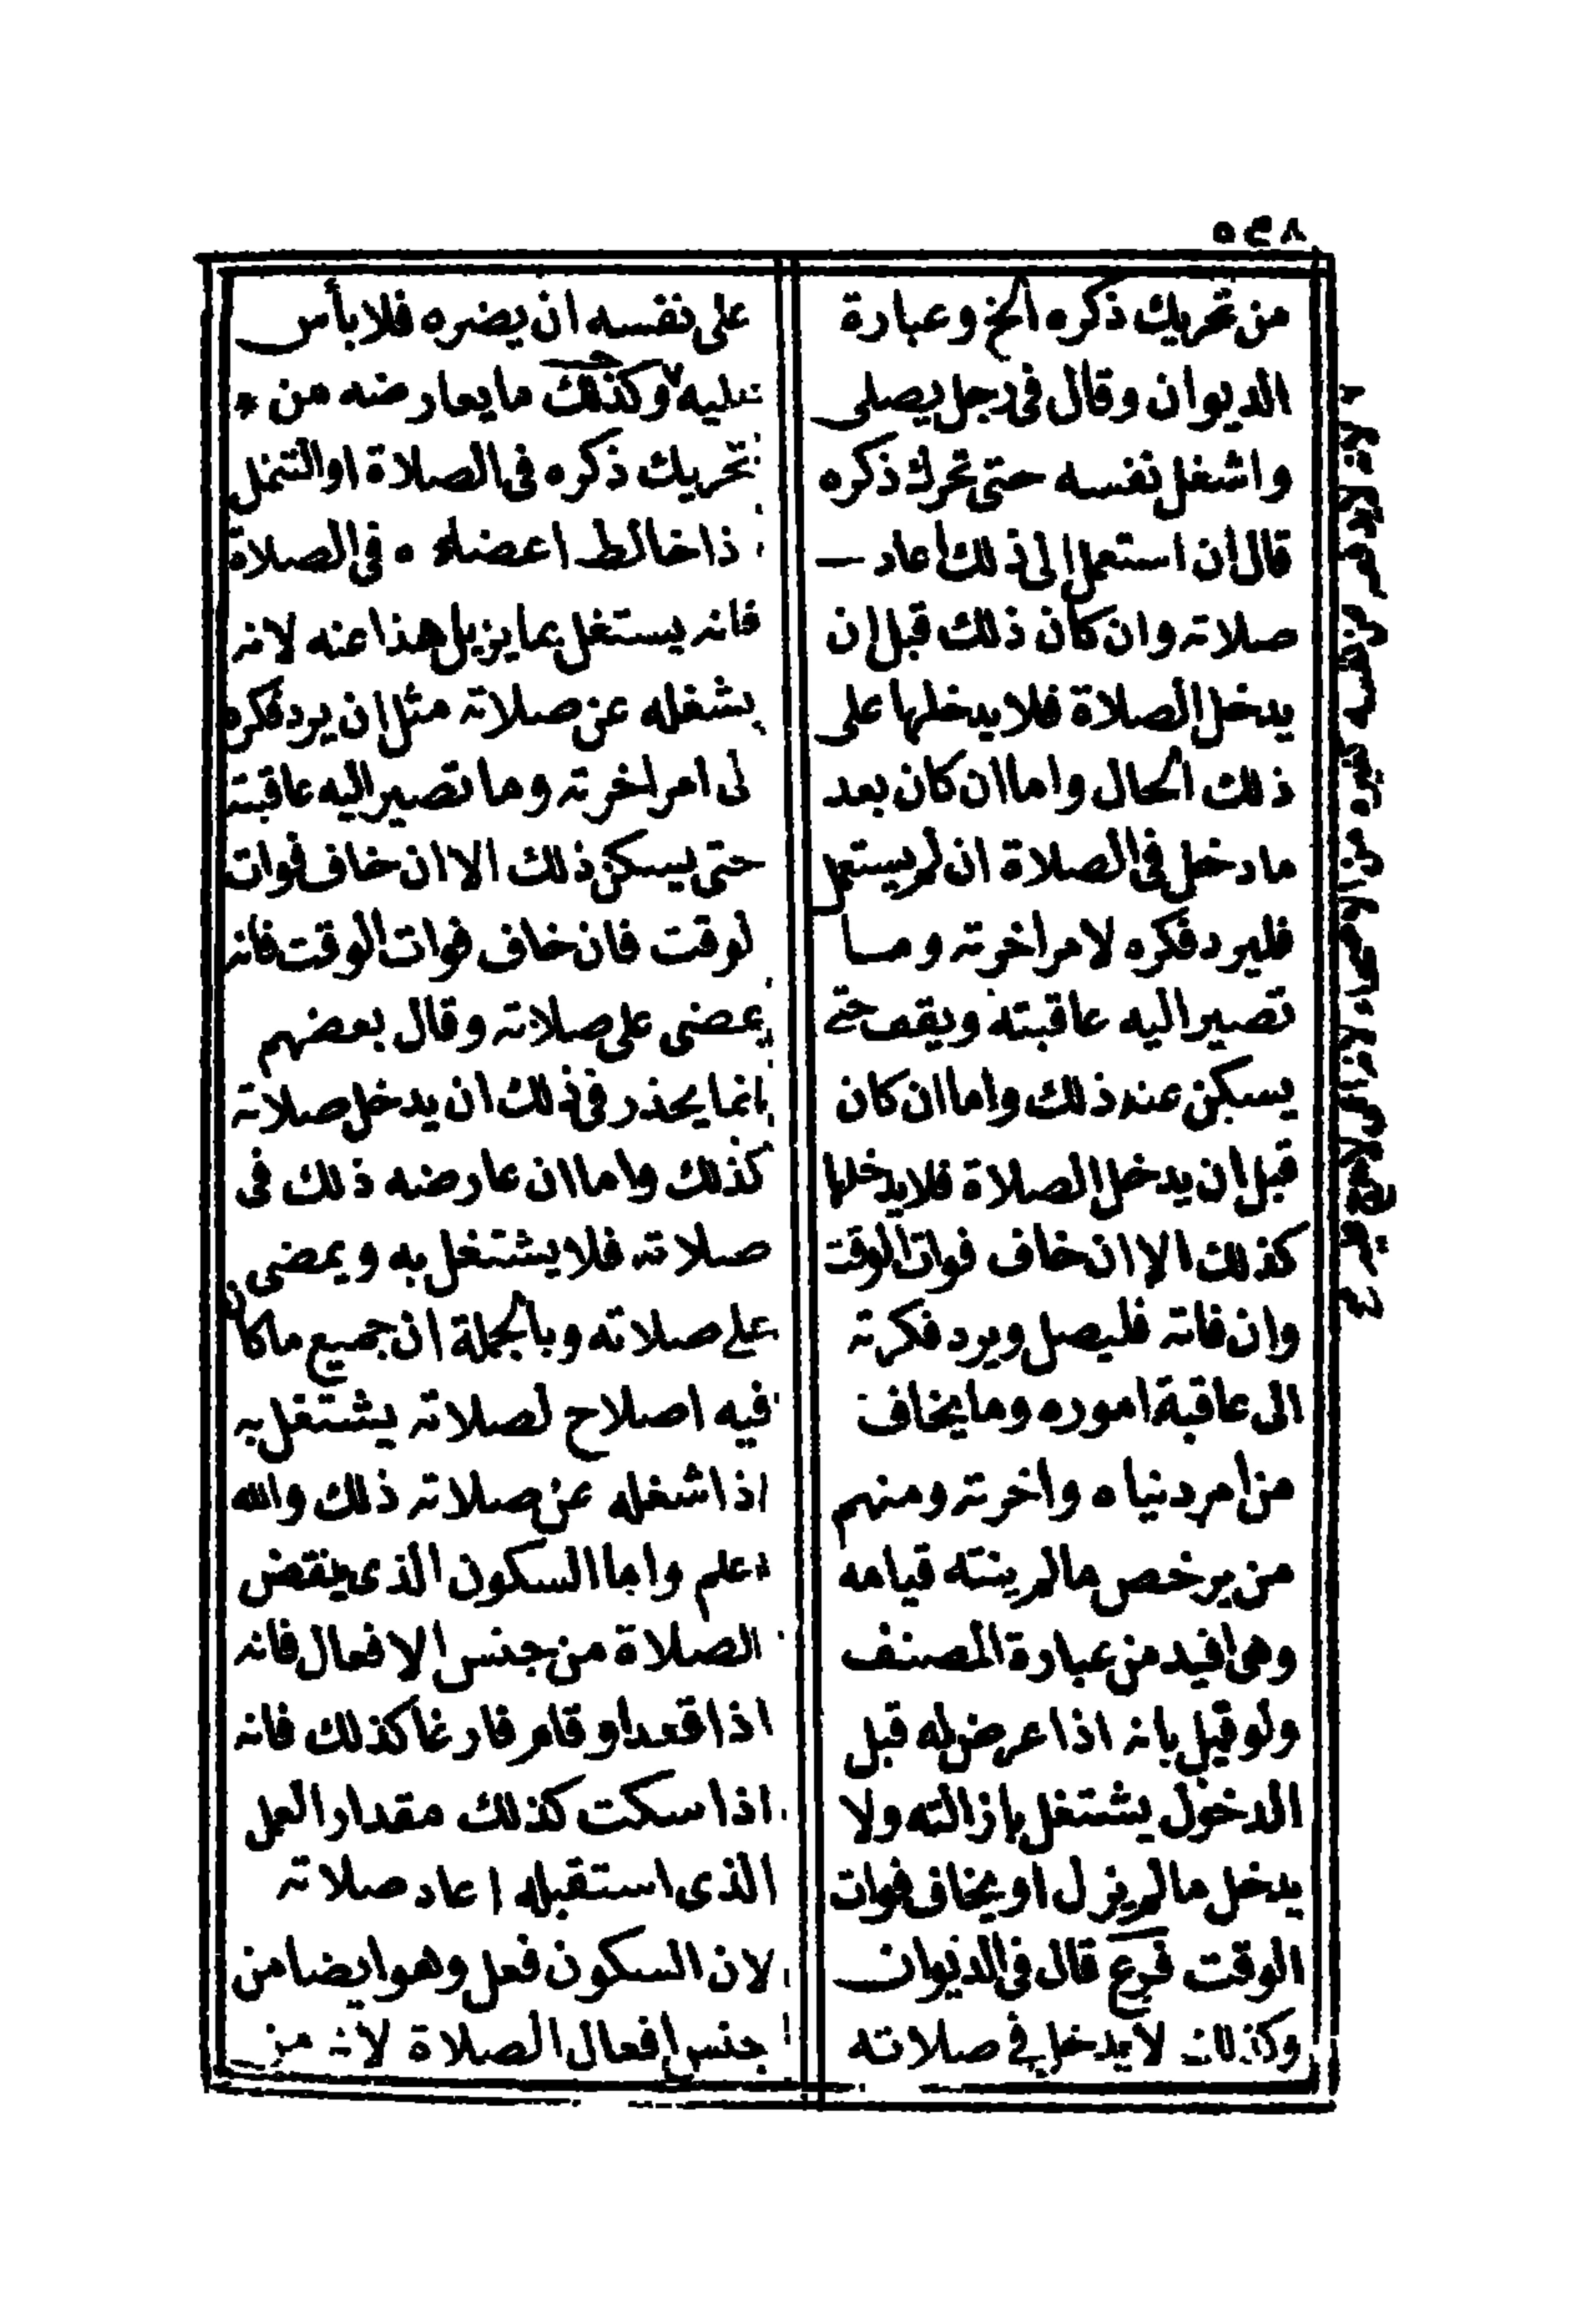 ٥٣٨
من تحريك ذكره الخ وعبارة
الديوان وقال في رجل يصلي
واشغل نفسه حتى تحرك ذكره
قال ان استعمل الى ذلك اعاد
صلاته وان كان ذلك قبل ان
يدخل الصلاة فلا يدخلها على
ذلك الحال واما ان كان بعد
ما دخل في الصلاة ان لم يستعمل
فليرد فكره لامر اخرته وما
تصير اليه عاقبته ويقف حتى
يسكن عند ذلك واما ان كان
قبل ان يدخل الصلاة فلا يدخلها
كذلك الا ان خاف فوات الوقت
وان فاته فليصل ويرد فكرته
الى عاقبة اموره وما يخاف
من امر دنياه واخرته ومنهم
من يرخص ما لم ينته قيامه
وهي افيد من عبارة المصنف
ولو قيل بانه اذا عرض له قبل
الدخول يشتغل بازالته ولا
يدخل ما لم يزل او يخاف فوات
الوقت فرع قال في الديوان
وكذلك لا يدخل في صلاته
على نفسه ان يضره فلا بأس
عليه وكذلك ما يعارضه من *
تحريك ذكره في الصلاة او التنمل
اذا خالط اعضاءه في الصلاة
فانه يستغل بما يزيل هذا عنه لانه
يشغله عن صلاته مثل ان يرد فكره
الى امر اخرته وما تصير اليه عاقبته
حتى يسكن ذلك الا ان خاف فوات
الوقت فان خاف فوات الوقت فانه
يمضى على صلاته وقال بعضهم
انما يحذر في ذلك ان يدخل صلاته
كذلك واما ان عارضه ذلك في
صلاته فلا يشتغل به ويمضى
على صلاته وبالجملة ان جميع ما كان
فيه اصلاح لصلاته يشتغل به
اذا شغله عن صلاته ذلك والله
اعلم واما السكون الذي ينقض
الصلاة من جنس الافعال فانه
اذا قعد او قام فارغا كذلك فانه
اذا سكت كذلك مقدار العمل
الذي استقبله اعاد صلاته
لان السكون فعل وهو ايضا من
جنس افعال الصلاة لانه من